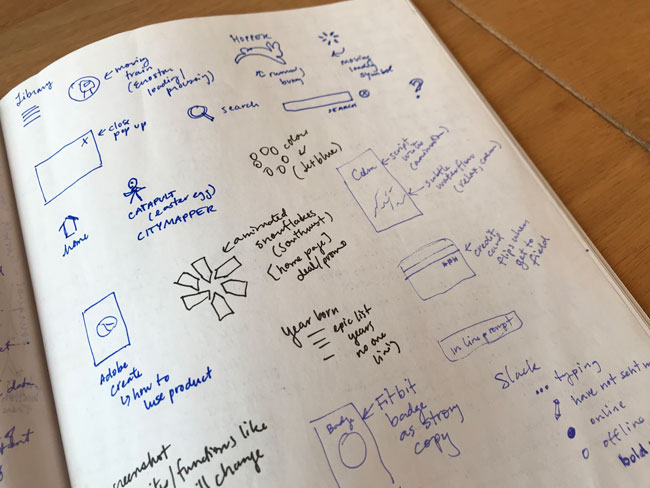 Library
moving
train
(Eurostar
loading/
processing)
HOPPER
running
bunny
moving
loading
symbol
x
close
pop up
search
SEARCH
?
home
CATAPULT
(easter egg)
CITYMAPPER
colour
(Jetblue)
Calm
script
writes
(animation)
subtle
waterflow
(relax, calm)
animated
snowflakes
(Southwest)
[home page]
deal/promo
credit
card
flips when
get to
field
Adobe
create
↳ how to
use product
Year born
epic list
years
no one
living
In line prompt
Badge
Fitbit
badge
as strong
copy
Slack
... typing
have not sent
online
offline
bold
screenshot
/functions like
ll change
data